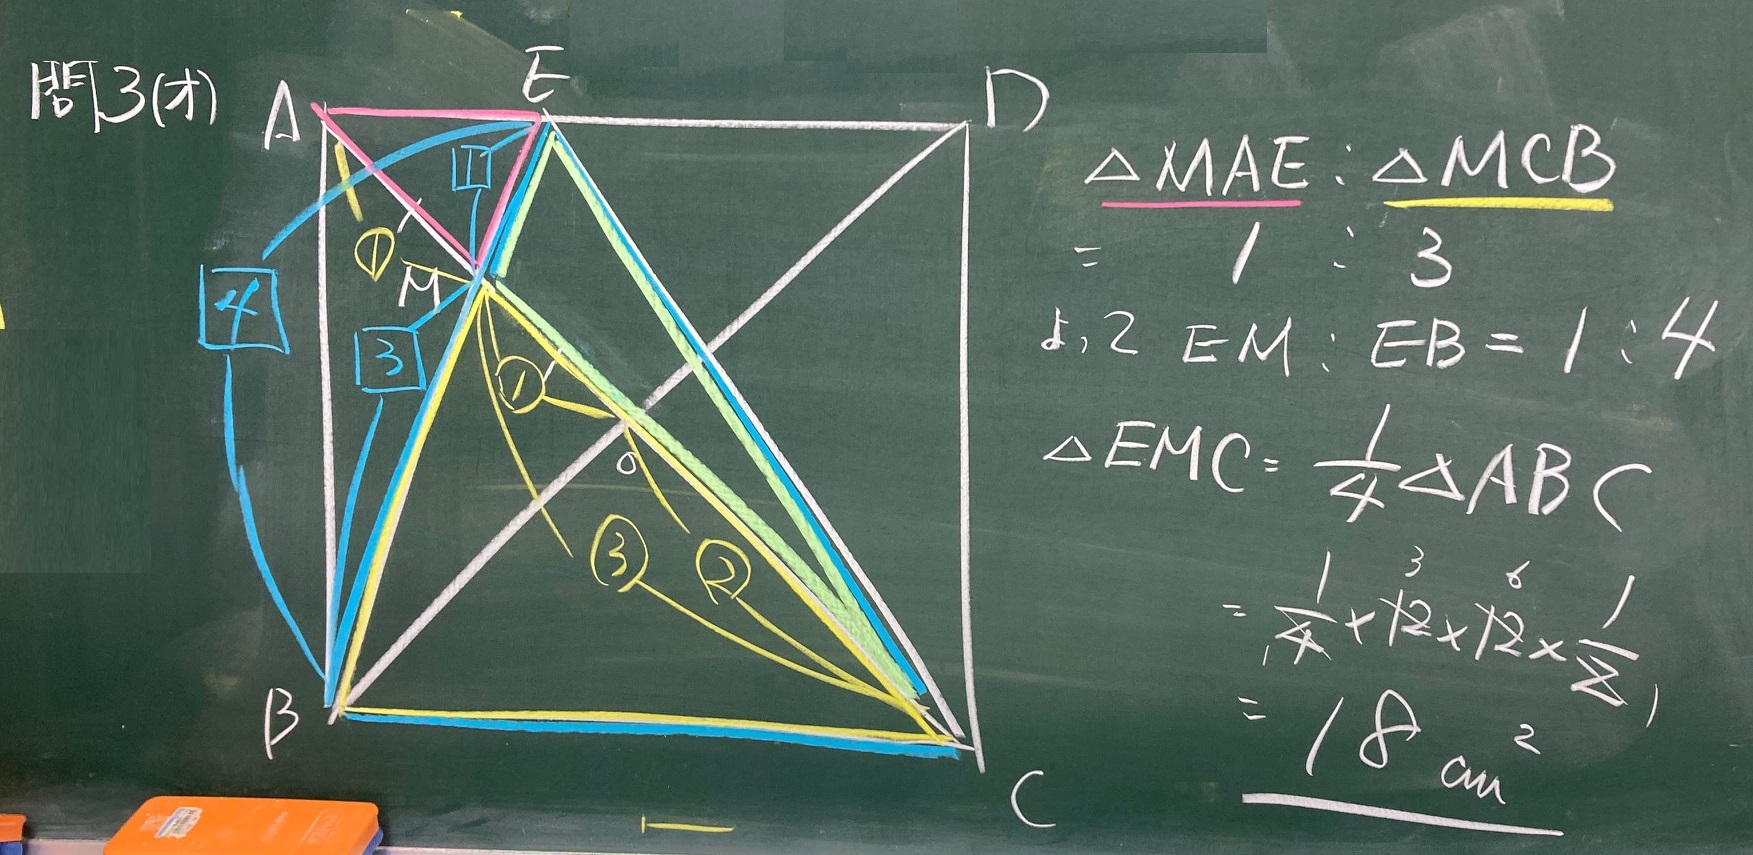 問3(オ)
A
E
D
1
4
①
M
3
①
O
③
②
B
C
△MAE : △MCB
= 1 : 3
よって EM : EB = 1 : 4
△EMC = 1/4 △ABC
= 1/4 × 12 × 12 × 1/2
3 6
1 1
= 18 cm²